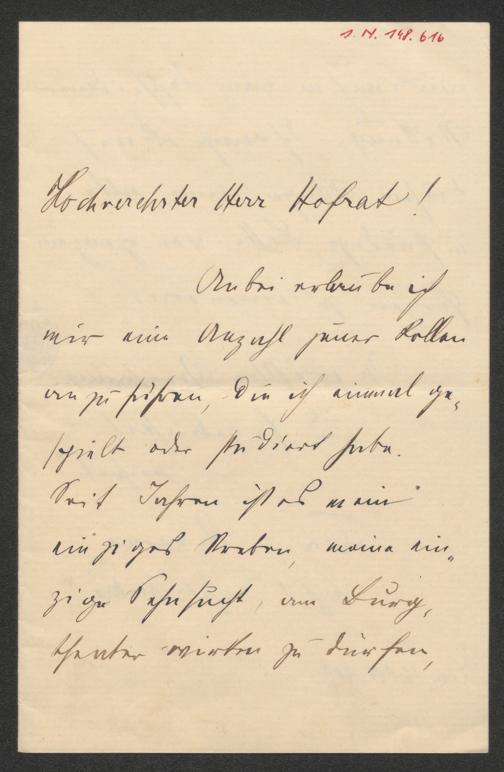 I. N. 148.616
Hochverehrter Herr Hofrat!
Anbei erlaube ich
mir eine Anzahl jener Rollen
anzuführen, die ich einmal ge-
spielt oder studiert habe.
Seit Jahren ist es mein
einziges Streben, meine ein-
zige Sehnsucht, am Burg-
theater wirken zu dürfen,